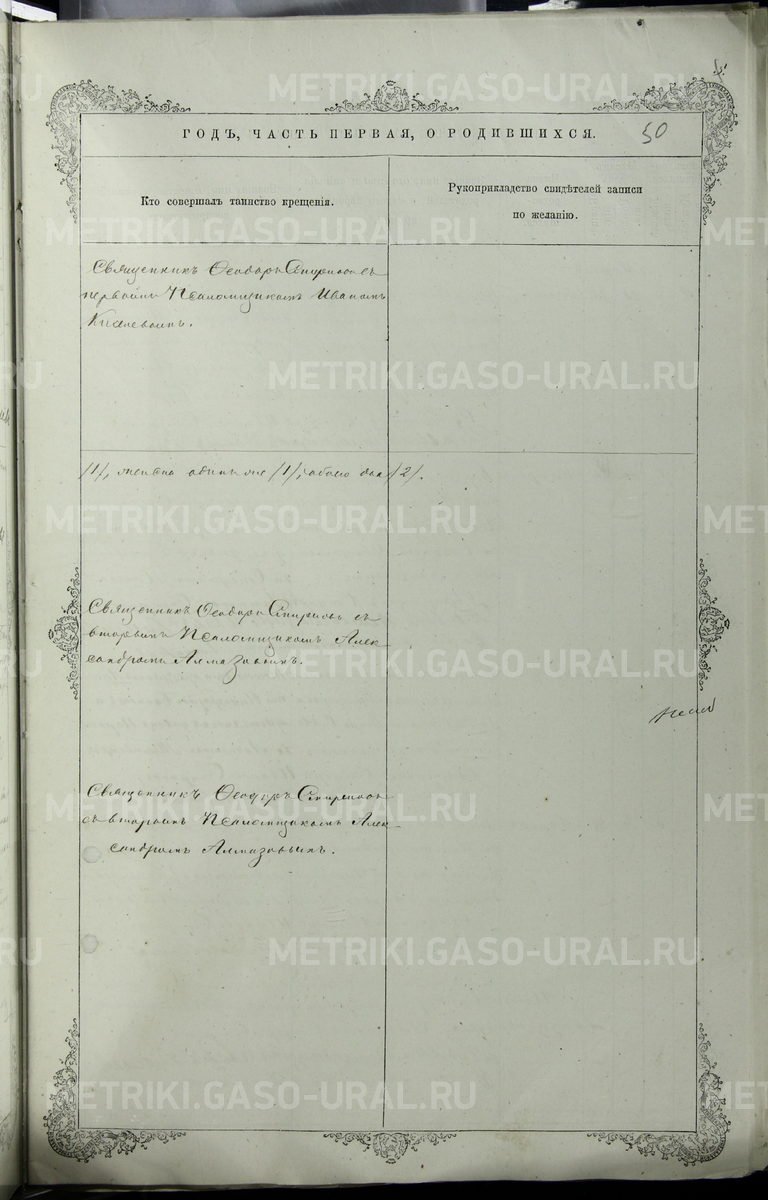 ГОДЪ, ЧАСТЬ ПЕРВАЯ, О РОДИВШИХСЯ.
50
Кто совершалъ таинство крещенія.
Рукоприкладство свидѣтелей записи
по желанію.
Священникъ Ѳеодоръ Спиридовъ съ
первымъ Псаломщикомъ Иваномъ
/1/, женска одинъ же /1/, обоего два /2/.
Священникъ Ѳеодоръ съ
вторымъ Псаломщикомъ Алек-
сандромъ Алмазовымъ.
Священникъ Ѳеодоръ
съ вторымъ Псаломщикомъ Алек-
сандромъ Алмазовымъ.
METRIKI.GASO-URAL.RU